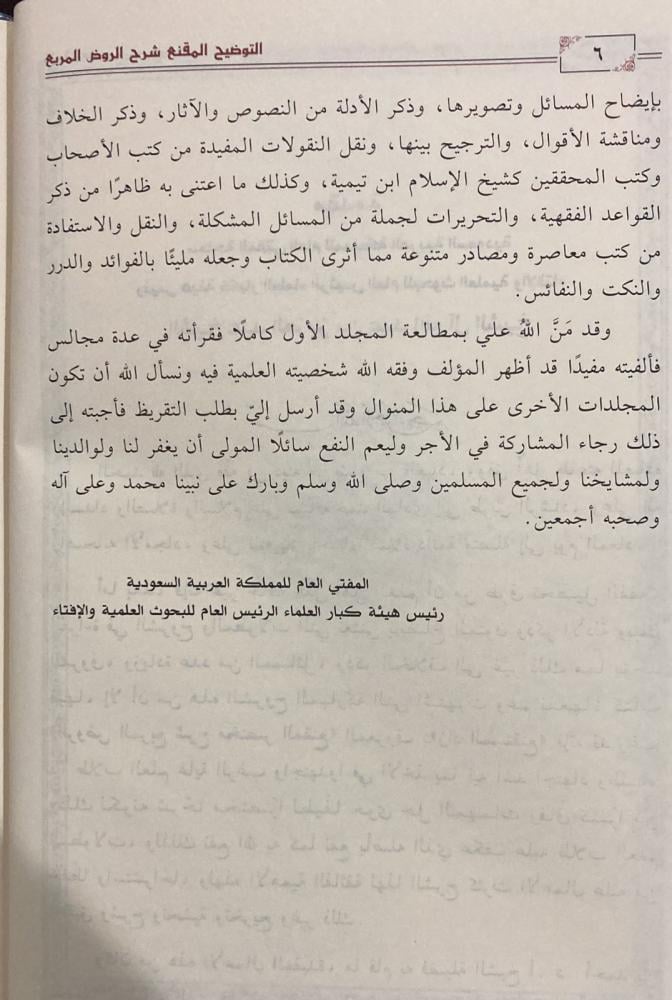 ٦
التوضيح المقنع شرح الروض المربع
بإيضاح المسائل وتصويرها، وذكر الأدلة من النصوص والآثار، وذكر الخلاف
ومناقشة الأقوال، والترجيح بينها، ونقل النقولات المفيدة من كتب الأصحاب
وكتب المحققين كشيخ الإسلام ابن تيمية، وكذلك ما اعتنى به ظاهرًا من ذكر
القواعد الفقهية، والتحريرات لجملة من المسائل المشكلة، والنقل والاستفادة
من كتب معاصرة ومصادر متنوعة مما أثرى الكتاب وجعله مليئًا بالفوائد والدرر
والنكت والنفائس.
وقد مَنَّ اللهُ علي بمطالعة المجلد الأول كاملًا فقرأته في عدة مجالس
فألفيته مفيدًا قد أظهر المؤلف وفقه الله شخصيته العلمية فيه ونسأل الله أن تكون
المجلدات الأخرى على هذا المنوال وقد أرسل إليّ بطلب التقريظ فأجبته إلى
ذلك رجاء المشاركة في الأجر وليعم النفع سائلًا المولى أن يغفر لنا ولوالدينا
ولمشايخنا ولجميع المسلمين وصلى الله وسلم وبارك على نبينا محمد وعلى آله
وصحبه أجمعين.
المفتي العام للمملكة العربية السعودية
رئيس هيئة كبار العلماء الرئيس العام للبحوث العلمية والإفتاء